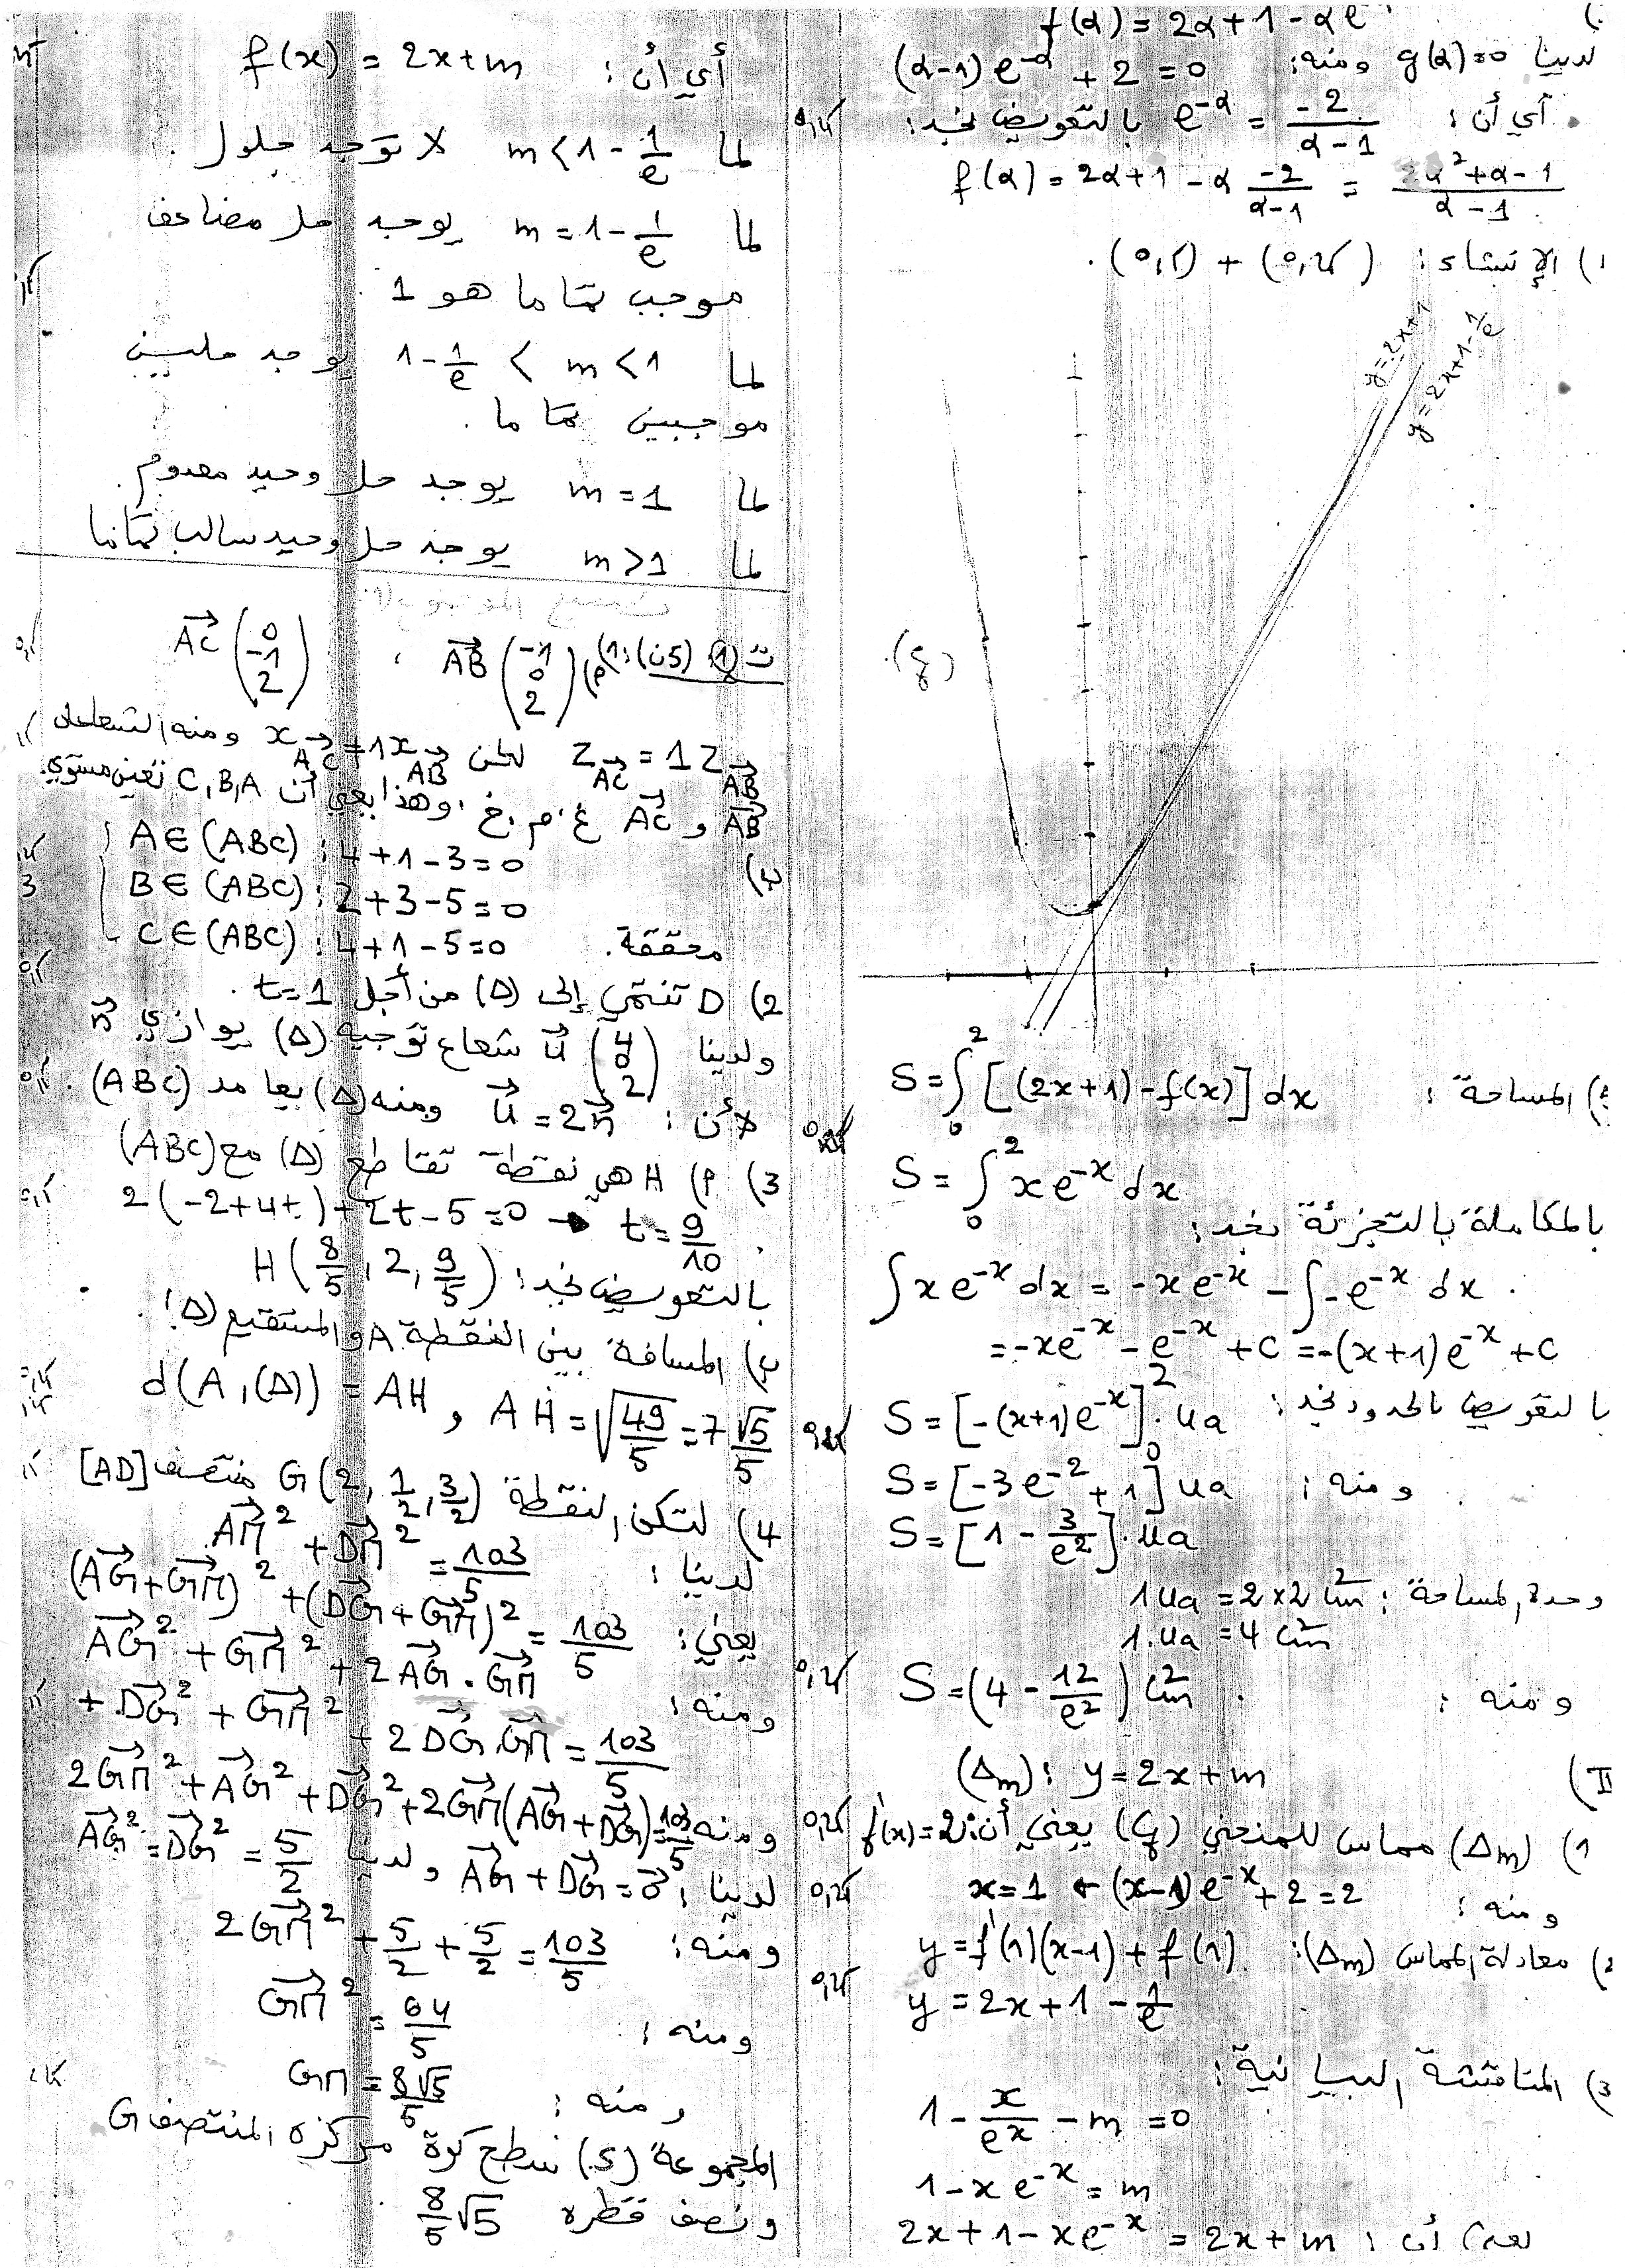 f(α) = 2α+1-αe
لدينا g(α)=0 ومنه: (α-1)e^{-α} + 2 = 0
أي أن: e^{-α} = \frac{-2}{α-1} بالتعويض نجد:
f(α) = 2α+1-α \frac{-2}{α-1} = \frac{2α²+α-1}{α-1}
1) الإنشاء: (0,25) + (0,5).
y=2x+1
y=2x+1-1/e
(Cf)
المساحة: S = ∫_0^2 [(2x+1)-f(x)] dx
S = ∫_0^2 xe^{-x} dx
بالمكاملة بالتجزئة نجد:
∫xe^{-x} dx = -xe^{-x} - ∫-e^{-x} dx.
= -xe^{-x} - e^{-x} + C = -(x+1)e^{-x} + C
بالتعويض بالحدود نجد: S = [-(x+1)e^{-x}]_0^2 . ua
ومنه: S = [-3e^{-2} + 1] ua
S = [1 - \frac{3}{e²}] . ua
وحدة المساحة: 1ua = 2×2 cm²
1.ua = 4 cm²
ومنه: S = (4 - \frac{12}{e²}) cm².
II) (Δm): y = 2x+m
1) (Δm) مماس للمنحني (Cf) يعني أن: f'(x)=2
ومنه: x=1 ← (x-1)e^{-x} + 2 = 2
2) معادلة المماس (Δm): y = f'(1)(x-1) + f(1)
y = 2x+1-\frac{1}{e}
3) المناقشة البيانية:
1 - \frac{x}{e^x} - m = 0
1 - xe^{-x} = m
2x+1-xe^{-x} = 2x+m
أي أن: f(x) = 2x+m
لما m < 1-\frac{1}{e} لا توجد حلول.
لما m = 1-\frac{1}{e} يوجد حل مضاعف
موجب تماما هو 1
لما 1-\frac{1}{e} < m < 1 يوجد حلين
موجبين تماما.
لما m = 1 يوجد حل وحيد معدوم.
لما m > 1 يوجد حل وحيد سالب تماما
ت① (5ن): 1) أ) \vec{AB} (-1 0 2) ، \vec{AC} (0 -1 2)
Z_{AC} = 1 Z_{AB} لكن x_{AC} ≠ 1x_{AB} ومنه الشعاعان
\vec{AB} و \vec{AC} غ.م.خ، وهذا يعني أن C,B,A تعين مستوي.
ب) A∈(ABC): 4+1-3=0
B∈(ABC): 2+3-5=0
C∈(ABC): 4+1-5=0 محققة.
2) D تنتمي إلى (Δ) من أجل t=1.
ولدينا \vec{u} (4 0 2) شعاع توجيه (Δ) يوازي \vec{n}
لأن: \vec{u} = 2\vec{n} ومنه (Δ) يعامد (ABC).
3) أ) H هي نقطة تقاطع (Δ) مع (ABC)
2(-2+4t)+2t-5=0 → t=\frac{9}{10}.
بالتعويض نجد: H(\frac{8}{5}, 2, \frac{9}{5})
ب) المسافة بين النقطة A والمستقيم (Δ):
d(A,(Δ)) = AH و AH = \sqrt{\frac{49}{5}} = 7\frac{√5}{5}
4) لتكن النقطة G(2, \frac{1}{2}, \frac{3}{2}) منتصف [AD]
لدينا: \vec{AM}² + \vec{DM}² = \frac{103}{5}
يعني: (\vec{AG}+\vec{GM})² + (\vec{DG}+\vec{GM})² = \frac{103}{5}
ومنه: \vec{AG}² + \vec{GM}² + 2\vec{AG}.\vec{GM}
+ \vec{DG}² + \vec{GM}² + 2\vec{DG}.\vec{GM} = \frac{103}{5}
ومنه 2\vec{GM}² + \vec{AG}² + \vec{DG}² + 2\vec{GM}(\vec{AG}+\vec{DG}) = \frac{103}{5}
لدينا: \vec{AG}+\vec{DG}=\vec{0} ولدينا \vec{AG}² = \vec{DG}² = \frac{5}{2}
ومنه: 2\vec{GM}² + \frac{5}{2} + \frac{5}{2} = \frac{103}{5}
ومنه: \vec{GM}² = \frac{64}{5}
ومنه: GM = \frac{8√5}{5}
المجموعة (S) سطح كرة مركزه المنتصف G
ونصف قطره \frac{8}{5}√5